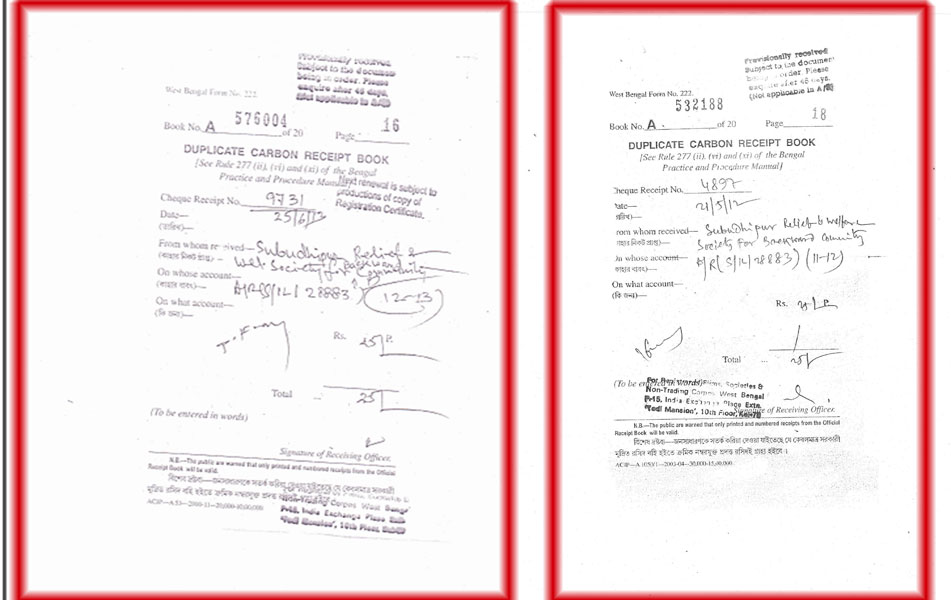 Provisionally received
Subject to the document
being in order. Please
enquire after 45 days.
(Not applicable in A/R)
West Bengal Form No. 222.
576004
Book No. A of 20 Page 16
DUPLICATE CARBON RECEIPT BOOK
[See Rule 277 (ii), (vi) and (xi) of the Bengal
Practice and Procedure Manual]
Next renewal is subject to
productions of copy of
Registration Certificate.
Cheque Receipt No. 9731
Date—
(তারিখ)—
From whom received— Subudhipur Relief &
Society for Community
On whose account—
28883 (12-13)
On what account—
(কি জন্য)—
Rs. 25 P.
Total 25
(To be entered in words)
Signature of Receiving Officer.
N.B.—The public are warned that only printed and numbered receipts from the Official
Receipt Book will be valid.
বিশেষ দ্রষ্টব্য—জনসাধারণকে সতর্ক করিয়া দেওয়া যাইতেছে যে কেবলমাত্র সরকারী
মুদ্রিত রসিদ বহি হইতে ক্রমিক
Non-Trading Corpns West Bengal
P-15, India Exchange Place Extn
'Todi Mansion', 10th Floor,
Provisionally received
Subject to the document
being in order. Please
enquire after 45 days.
(Not applicable in A/R)
West Bengal Form No. 222.
532188
Book No. A. of 20 Page 18
DUPLICATE CARBON RECEIPT BOOK
[See Rule 277 (ii), (vi) and (xi) of the Bengal
Practice and Procedure Manual]
Cheque Receipt No. 4897
21/5/12
rom whom received— Subudhipur Relief & Welfare
Society For Backward Community
On whose account— A/R (S/1L/28883) (11-12)
On what account—
(কি জন্য)—
Rs. P.
Total ... 25/
(To be entered in words)
For Registrar of Firms, Societies &
Non-Trading Corpns. West Bengal
P-15, India Exchange Place Extn.
'Todi Mansion', 10th Floor,
Signature of Receiving Officer.
N.B.—The public are warned that only printed and numbered receipts from the Official
Receipt Book will be valid.
বিশেষ দ্রষ্টব্য—জনসাধারণকে সতর্ক করিয়া দেওয়া যাইতেছে যে কেবলমাত্র সরকারী
মুদ্রিত রসিদ বহি হইতে ক্রমিক নম্বরযুক্ত প্রদত্ত রসিদই গ্রাহ্য হইবে।